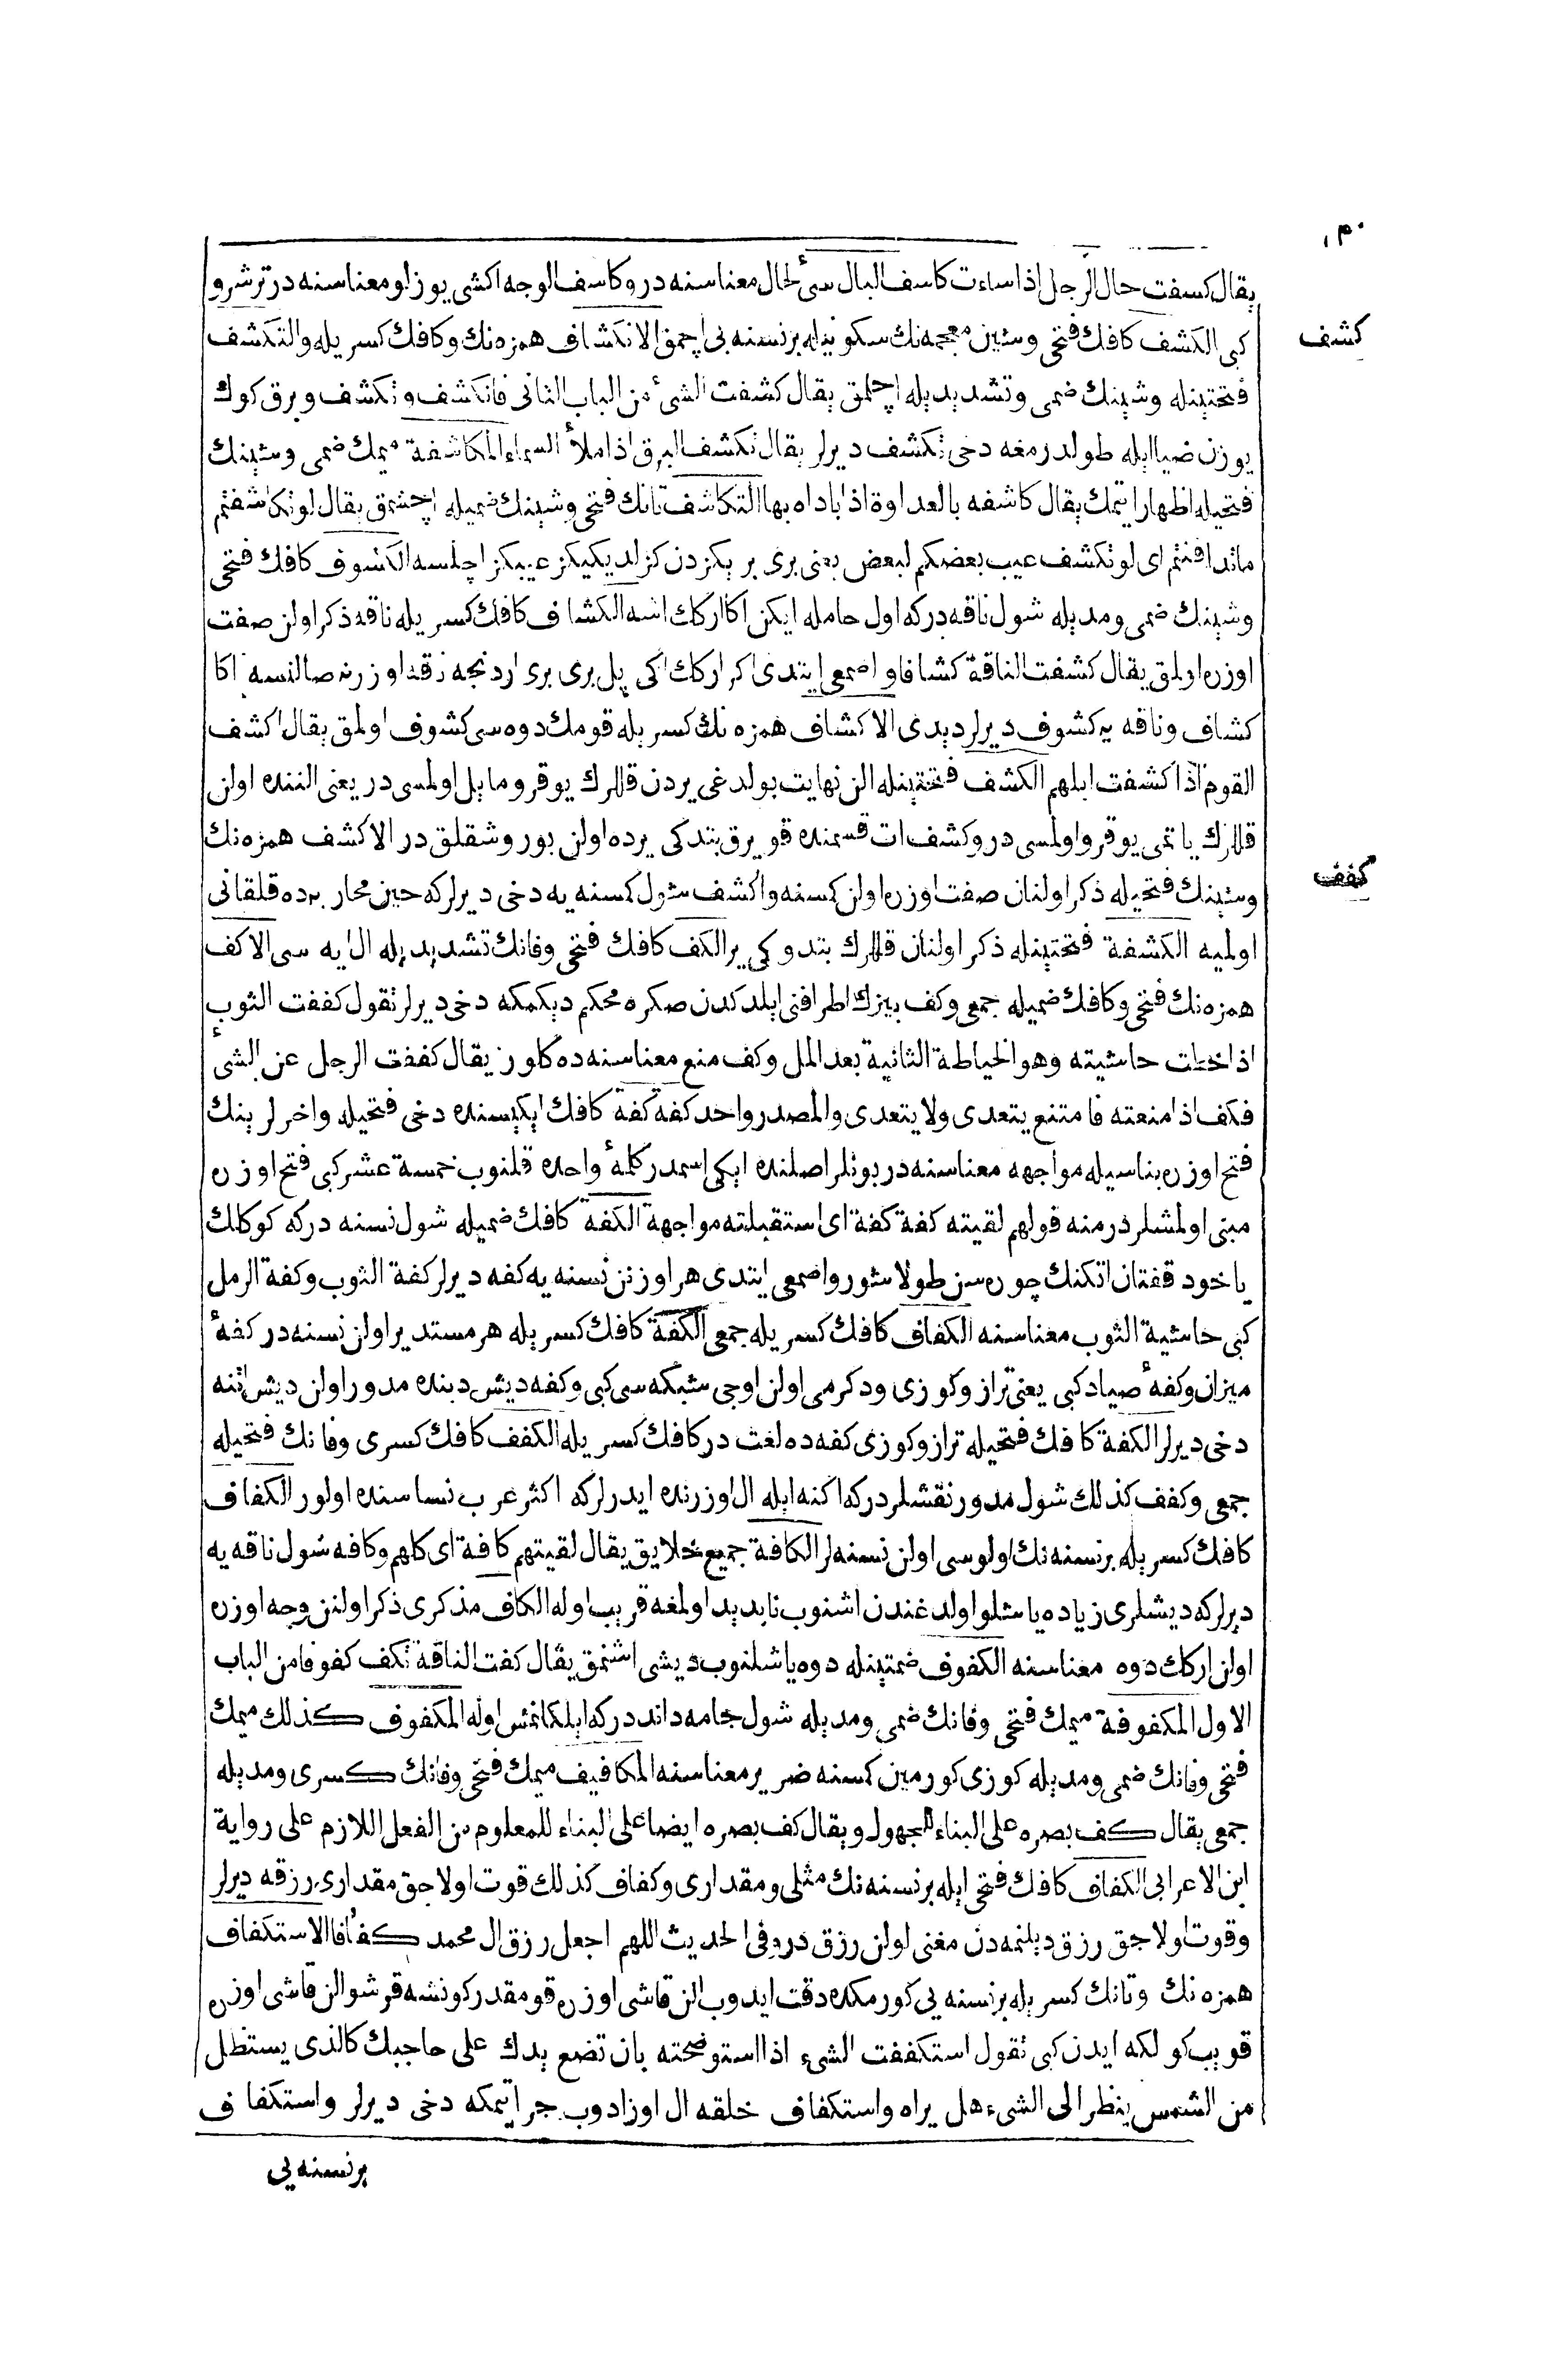 ١٣٠
يقال كسفت حال الرجل اذا ساءت كاسف البال سىء الحال معناسنه در و كاسف الوجه اكشى يوزلو معناسنه در ترشرو
كشف
كبى الكشف كافك فتحى وشين معجمه نك سكونيله برنسنه يى اچمق الانكشاف همزه نك وكافك كسريله والتكشف
فتحتينله وشينك ضمى وتشديديله اچلمق يقال كشفت الشىء من الباب الثانى فانكشف وتكشف وبرق كوك
يوزن ضيا ايله طولدرمغه دخى تكشف ديرلر يقال تكشف البرق اذا ملأ السماء المكاشفة ميمك ضمى وشينك
فتحيله اظهار ايتمك يقال كاشفه بالعداوة اذا باداه بها التكاشف تانك فتحى وشينك ضميله اچشمق يقال لو تكاشفتم
ما تدافنتم اى لو تكشف عيب بعضكم لبعض يعنى برى بريكزدن كزلديكيكز عيبكز اچلسه الكشوف كافك فتحى
وشينك ضمى ومديله شول ناقه دركه اول حامله ايكن اكا اركك اشه الكشاف كافك كسريله ناقه ذكر اولن صفت
اوزره اولمق يقال كشفت الناقة كشافا واصمعى ايتدى اكر اركك اكى ييل برى برى اردنجه ناقه اوزرنه صالنسه اكا
كشاف وناقه يه كشوف ديرلر ديدى الاكشاف همزه نك كسريله قومك دوه سى كشوف اولمق يقال اكشف
القوم اذا كشفت ابلهم الكشف فتحتينله الن نهايت بولدغى يردن قللرك يوقرو مايل اولمسى در يعنى الننده اولن
قللرك ياتمى يوقرو اولمسى در وكشف ات قسمنده قويرق بتدكى يرده اولن بوروشقلق در الاكشف همزه نك
كفف
وشينك فتحيله ذكر اولنان صفت اوزره اولن كسنه واكشف شول كسنه يه دخى ديرلركه حين محاربه ده قلقانى
اولميه الكشفة فتحتينله ذكر اولنان قللرك بتدوكى ير الكف كافك فتحى وفانك تشديديله ال ايه سى الاكف
همزه نك فتحى وكافك ضميله جمعى وكف بيزك اطرافنى ايلدكدن صكره محكم ديكمكه دخى ديرلر تقول كففت الثوب
اذا خطت حاشيته وهو الخياطة الثانية بعد المل وكف منع معناسنه ده كلور يقال كففت الرجل عن الشىء
فكف اذا منعته فامتنع يتعدى ولا يتعدى والمصدر واحد كفه كفة كافك ايكيسنده دخى فتحيله واخرلرينك
فتح اوزره بناسيله مواجهه معناسنه در بونلر اصلنده ايكى اسمدر كلمهٔ واحده قلنوب خمسة عشر كبى فتح اوزره
مبنى اولمشلردر منه قولهم لقيته كفة كفة اى استقبلته مواجهة الكفه كافك ضميله شول نسنه دركه كوكلك
يا خود قفتان اتكنك چوره سن طولاشور واصمعى ايتدى هر اوزنن نسنه يه كفه ديرلر كفة الثوب وكفة الرمل
كبى حاشية الثوب معناسنه الكفاف كافك كسريله جمعى الكفة كافك كسريله هر مستدير اولن نسنه در كفهٔ
ميزان وكفهٔ صياد كبى يعنى ترازو كوزى ودكرمى اولن اوجى شبكه سى كبى وكفه ديش دبنده مدور اولن ديش اتنه
دخى ديرلر الكفة كافك فتحيله ترازو كوزى كفه ده لغت در كافك كسريله الكفف كافك كسرى وفانك فتحيله
جمعى وكفف كذلك شول مدور نقشلردركه اكنه ايله ال اوزرنده ايدرلركه اكثر عرب نساسنده اولور الكفاف
كافك كسريله برنسنه نك اولوسى اولن نسنه لر الكافة جميع خلايق يقال لقيتهم كافة اى كلهم وكافه شول ناقه يه
ديرلركه ديشلرى زياده ياشلو اولدغندن اشنوب نابديد اولمغه قريب اوله الكاف مذكرى ذكر اولنن وجه اوزره
اولن اركك دوه معناسنه الكفوف ضمتينله دوه ياشلنوب ديشى اشنمق يقال كفت الناقة تكف كفوفا من الباب
الاول المكفوفة ميمك فتحى وفانك ضمى ومديله شول جامه داندركه ايلكلنمش اوله المكفوف كذلك ميمك
فتحى وفانك ضمى ومديله كوزى كورمين كسنه ضرير معناسنه المكافيف ميمك فتحى وفانك كسرى ومديله
جمعى يقال كف بصره على البناء للمجهول ويقال كف بصره ايضا على البناء للمعلوم من الفعل اللازم على رواية
ابن الاعرابى الكفاف كافك فتحى ايله برنسنه نك مثلى ومقدارى وكفاف كذلك قوت اولاجق مقدارى رزقه ديرلر
وقوت اولاجق رزق ديلنمه دن مغنى اولن رزق در وفى الحديث اللهم اجعل رزق ال محمد كفافا الاستكفاف
همزه نك وتانك كسريله برنسنه يى كورمكده دقت ايدوب الن قاشى اوزره قومقدر كونشه قرشو الن قاشى اوزره
قويب كولكه ايدن كبى تقول استكففت الشىء اذا استوضحته بان تضع يدك على حاجبك كالذى يستظل
من الشمس ينظر الى الشىء هل يراه واستكفاف خلقه ال اوزادوب جر ايتمكه دخى ديرلر واستكفاف
برنسنه يى